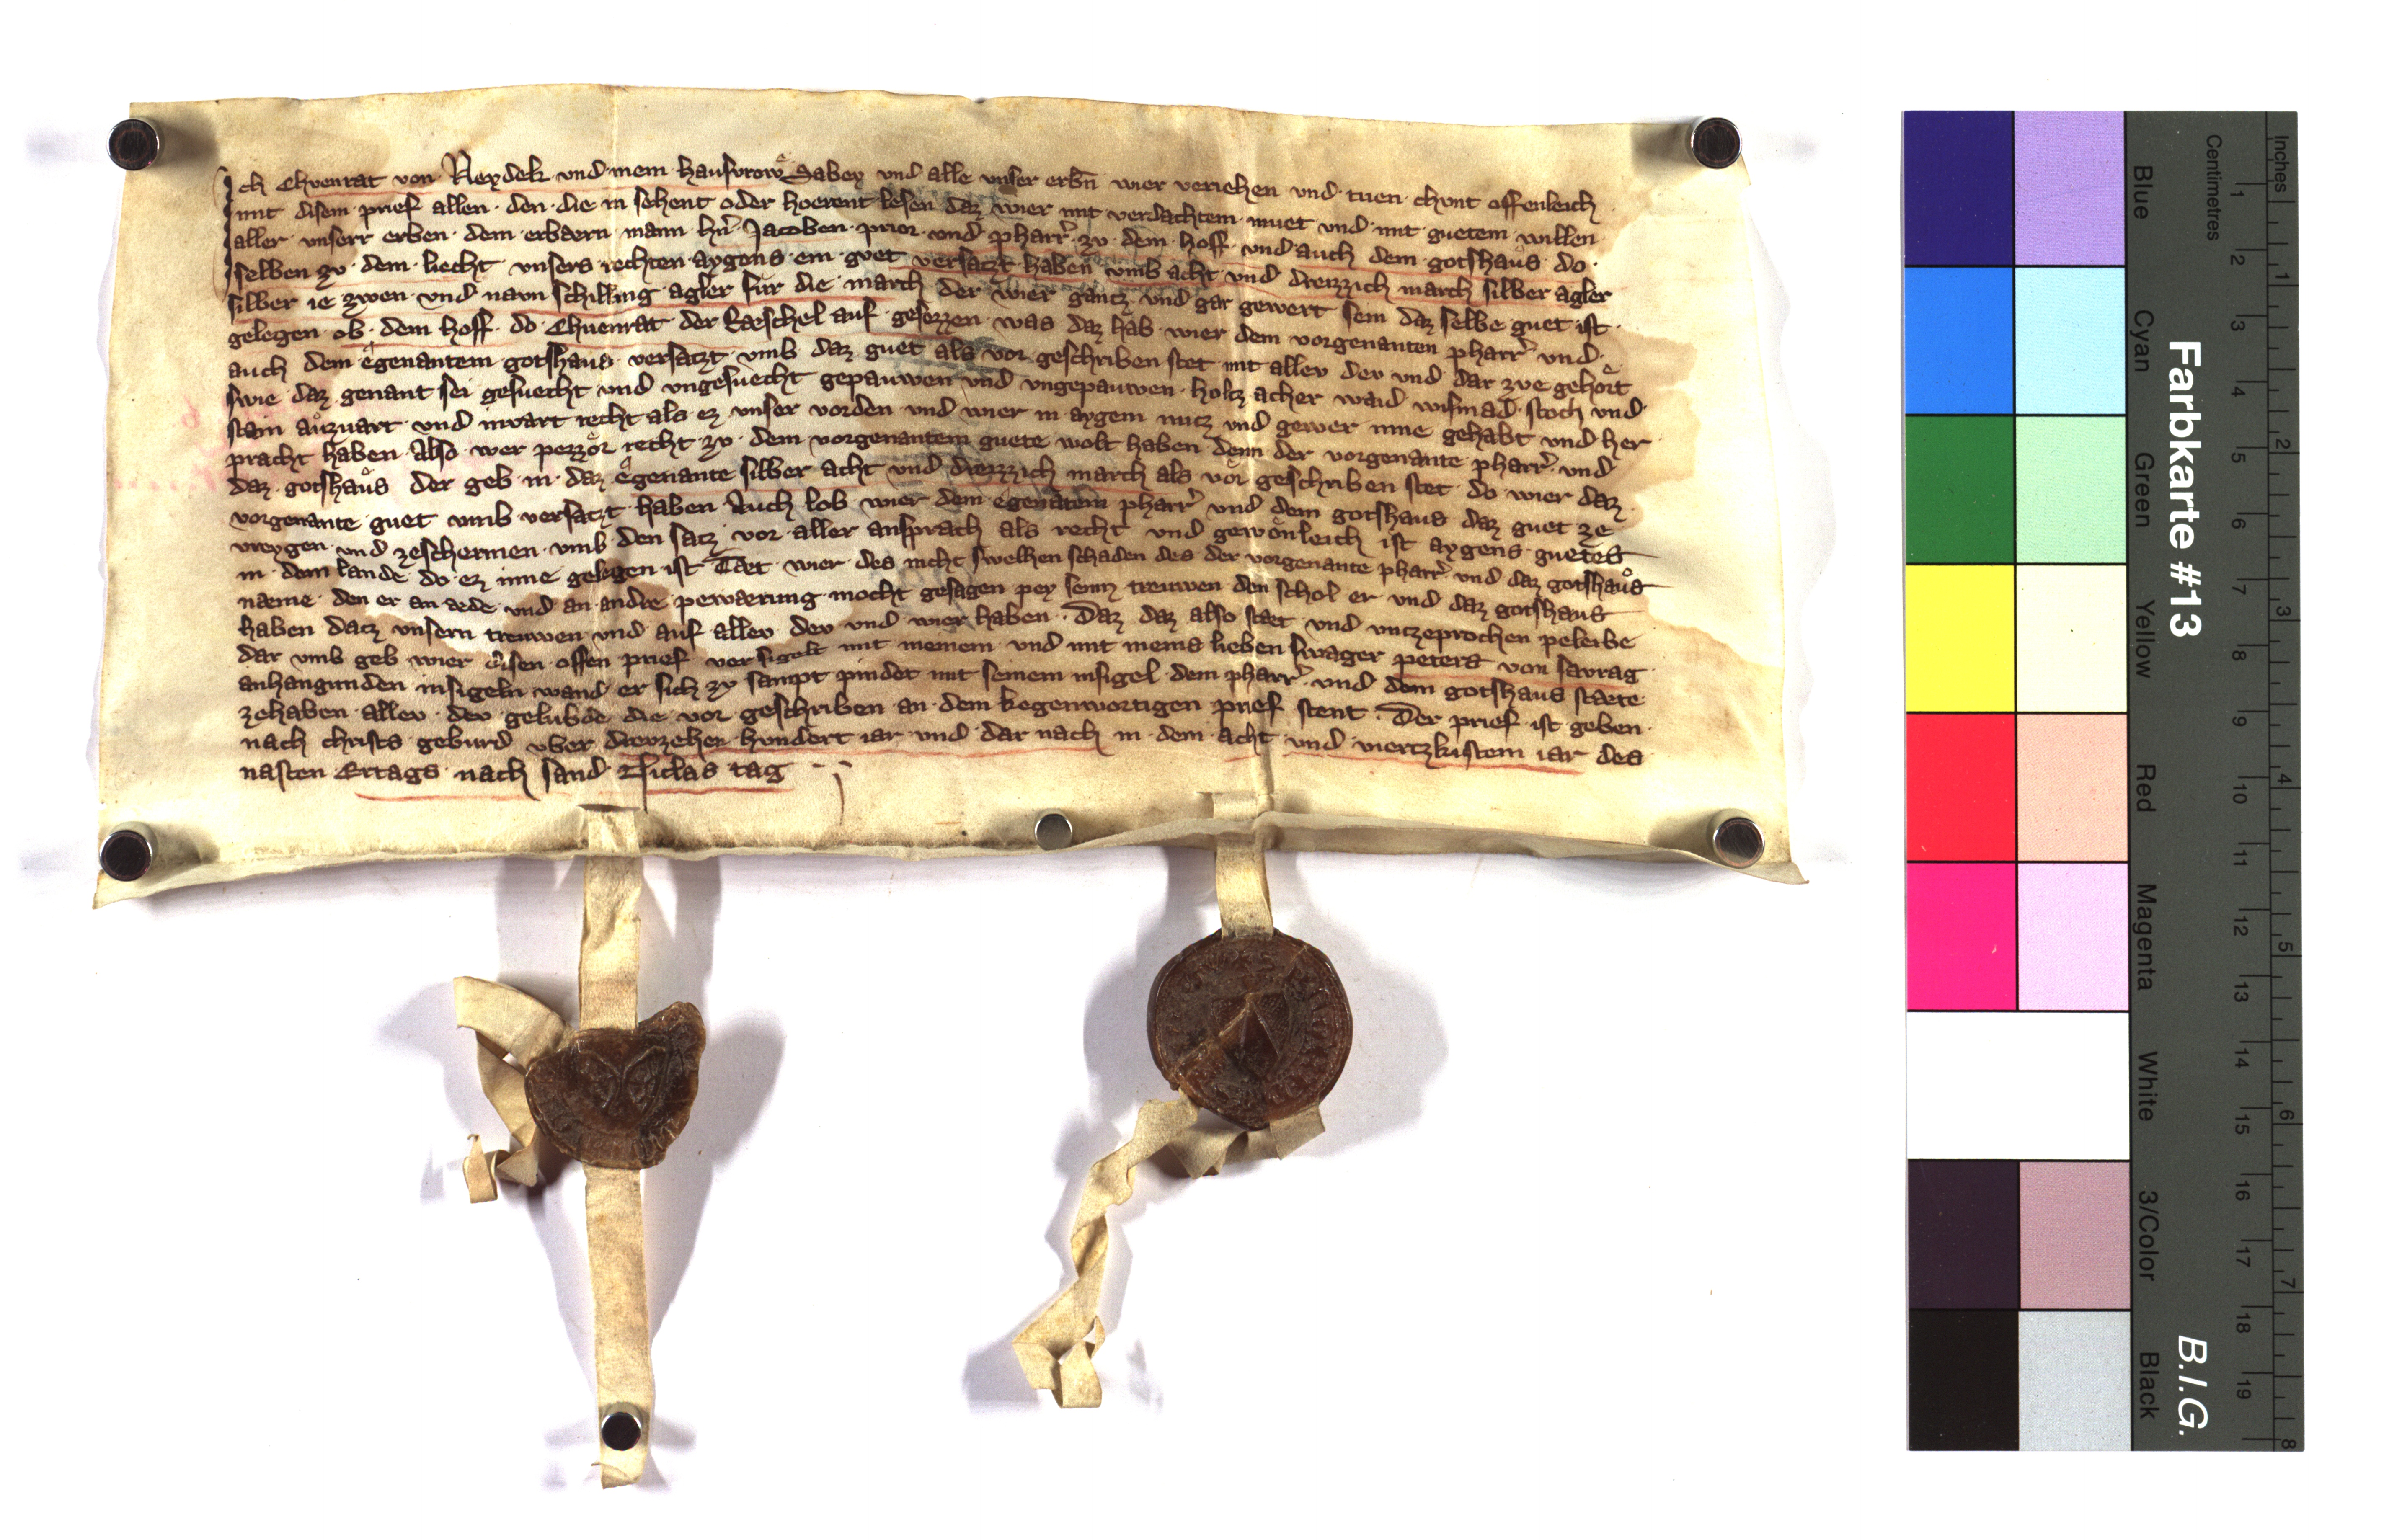 Ich Chvenrat von Neydek vnd mein hausvrow Sabey vnd alle vnser erbn wier veriehen vnd tuen chvnt offenleich
mit disem prief allen den die in sehent oder hoerent lesen daz wier mit verdachtem muet vnd mit guetem willen
aller vnserr erben dem erbaern mann hn Jacoben prior vnd pharr zv dem hoff vnd auch dem gotshaus do
selben zv dem liecht vnsers rechten aygens ein guet versatzt haben vmb acht vnd dreizzich march silber agler
silber ie zwen vnd navn schilling agler fur die march der wier gantz vnd gar gewert sein daz selbe guet ist
gelegen ob dem hoff do Chuenrat der auf gesezzen was daz hab wier dem vorgenanten pharr vnd
auch dem egenantem gotshaus versatzt vmb daz guet als vor geschriben stet mit allev dev vnd dar zve gehort
swie daz genant sei gesuecht vnd vngesuecht gepauwen vnd vngepauwen holtz acher waid wismad stoch vnd
stain auzwart vnd inwart recht als ez vnser vorden vnd wier in aygem nutz vnd gewer inne gehabt vnd her
pracht haben Also wer pezzor recht zv dem vorgenantem guete wolt haben denn der vorgenante pharr vnd
daz gotshaus der geb in daz egenante silber acht vnd dreizzich march als vor geschriben stet do wier daz
vorgenante guet vmb versatzt haben Auch lob wier dem egenatem pharr vnd dem gotshaus daz guet ze
vreygen vnd zeschermen vmb den satz vor aller ansprach als recht vnd gewonleich ist aygens guetes
in dem lande do ez inne gelegen ist Taet wier des nicht swelhen schaden des der vorgenante pharr vnd daz gotshaus
naeme den er an aede vnd an andre pewaerung mocht gesagen pey seinn treuwen den schol er vnd daz gotshaus
haben datz vnsern treuwen vnd auf allev dev vnd wier haben Daz daz also staet vnd vntzeprochen peleibe
dar vmb geb wier disen offen prief versigelt mit meinem vnd mit meins lieben swager peters von savrag
anhangunden insigeln wand er sich zv sampt pindet mit seinem insigel dem pharr vnd dem gotshaus staete
zehaben allev dev gelubde die vor geschriben an dem kegenwortigen prief stent Der prief ist geben
nach christs geburd vber drevzehen hvndert iar vnd dar nach in dem acht vnd viertzkistem iar des
nasten Ertags nach sand Niclas tag
Farbkarte #13
B.I.G.
Blue
Cyan
Green
Yellow
Red
Magenta
White
3/Color
Black
Centimetres
Inches
1 2 3 4 5 6 7 8 9 10 11 12 13 14 15 16 17 18 19
1 2 3 4 5 6 7 8